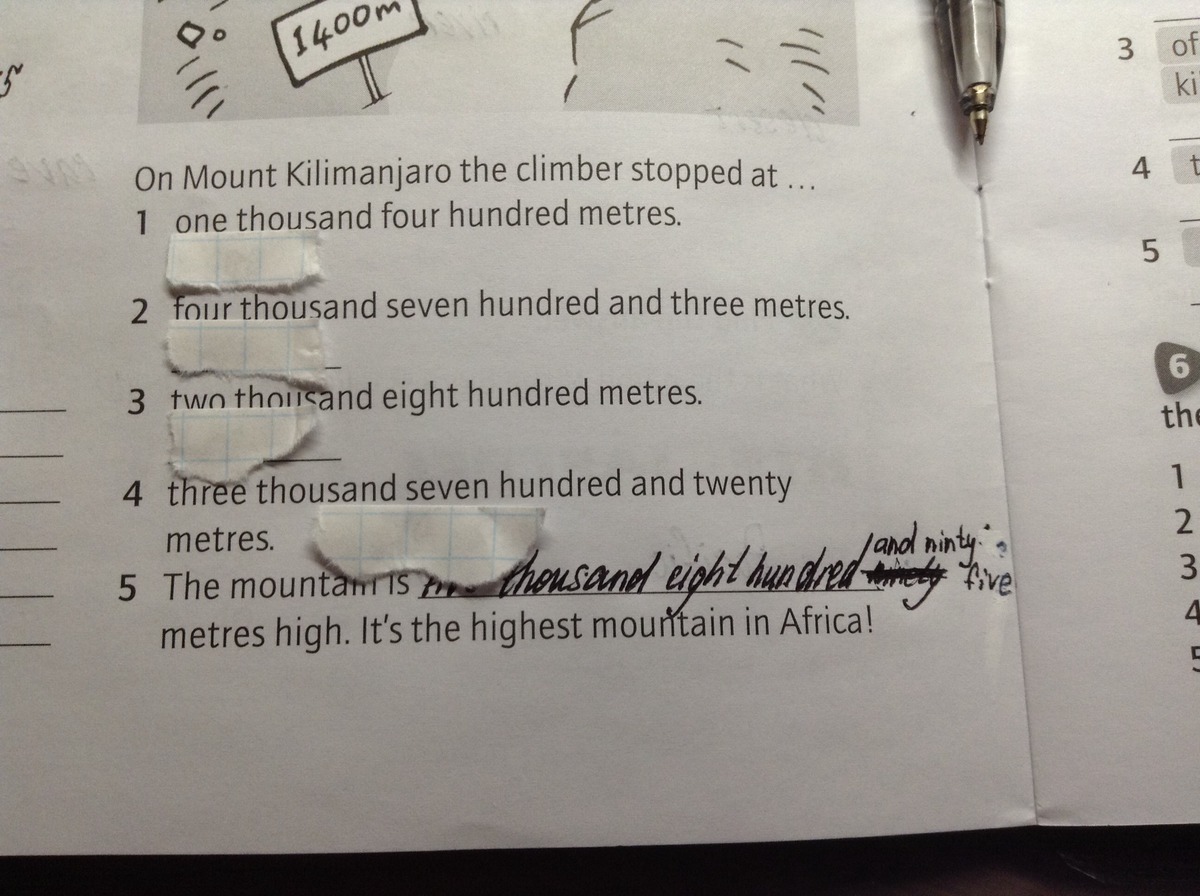 1400m
On Mount Kilimanjaro the climber stopped at ...
1 one thousand four hundred metres.
2 four thousand seven hundred and three metres.
3 two thousand eight hundred metres.
4 three thousand seven hundred and twenty
metres.
and ninty
5 The mountain is thousand eight hundred five
metres high. It's the highest mountain in Africa!
3 of
ki
4 t
5
6
the
1
2
3
4
5